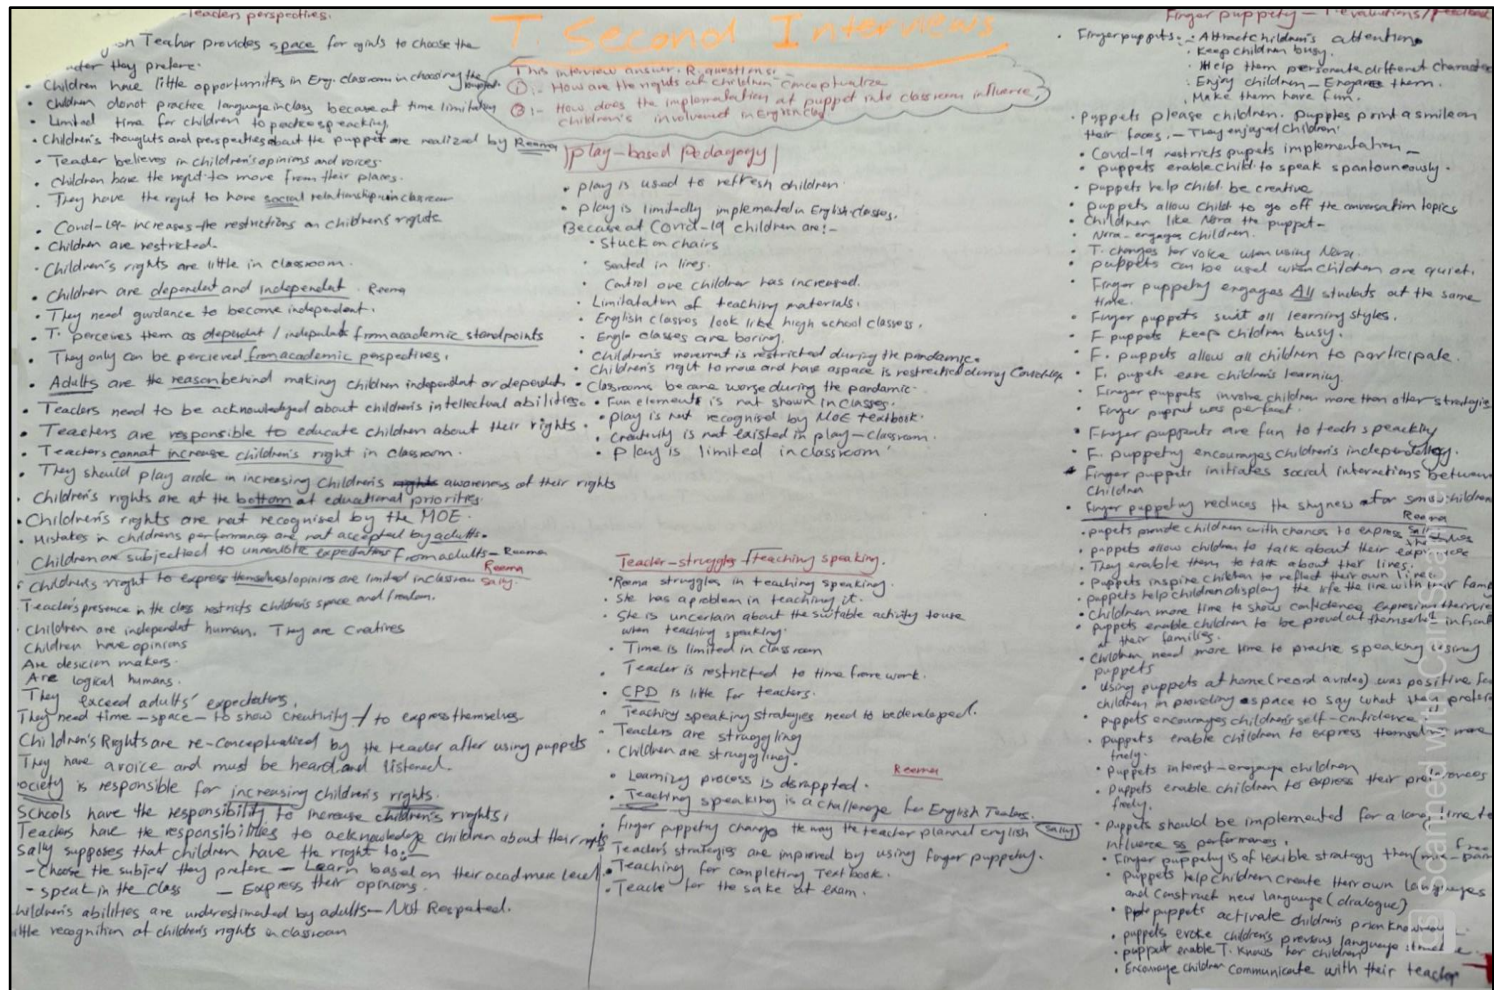 Teachers perspectives.
T. Second Interviews
This interview answer. R. questions:-
① :- How are the rights of children conceptualize
② :- How does the implementation of puppet into classroom influence
children's involvement in English Clas.
Teacher provides space for girls to choose the
they prefere.
• Children have little opportunities in Eng. classroom in choosing the
• Children donot practice language in class because of time limitation
• Limited time for children to practice speaking
• Children's thoughts and perspecties about the puppet are realized by Reema
• Teacher believes in children's opinions and voices.
• Children have the right to move from their places.
• They have the right to have social relationship in classroom
• Covid-19 increases the restrictions on childrens rights
• Children are restricted.
• Children's rights are little in classroom.
• Children are dependent and independent. Reema
• They need guidance to become independent.
• T. perceives them as dependent / independent from academic standpoints
• They only can be percieved from academic perspectives.
• Adults are the reason behind making children independent or dependent
• Teachers need to be acknowledged about children's intellectual abilities.
• Teachers are responsible to educate children about their rights.
• Teachers cannot increase children's right in classroom.
• They should play a role in increasing Children's awareness of their rights
• Children's rights are at the bottom of educational priorities.
• Children's rights are not recognised by the MOE.
• Mistakes in childrens performance are not accepted by adults.
Children are subjected to expectations from adults – Reema
• Children's right to express themselves/opinions are limited in classroom Reema Sally.
Teacher's presence in the class restricts children's space and freedom.
Children are independent human. They are Creatives
Children have opinions
Are desicion makers.
Are logical humans.
They exceed adults' expectations.
They need time – space – to show creativity – / to express themselves
Children's Rights are re-conceptualized by the teacher after using puppets
They have a voice and must be heard and listened.
ociety is responsible for increasing children's rights.
Schools have the responsibility to increase children's rights.
Teachers have the responsibilities to acknowledge children about their rights
Sally supposes that children have the right to:-
– Choose the subject they prefere – Learn based on their academic level.
– Speak in the class – Express their opinions.
hildren's abilities are underestimated by adults – Not Respected.
ittle recognition of children's rights in classroom
Play-based Pedagogy
• play is used to refresh children.
• play is limitedly implemented in English classes.
Because of Covid-19 children are:-
• Stuck on chairs
• Seated in lines.
Control over children has increased.
• Limitatation of teaching materials.
• English classes look like high school classess.
• classes are boring.
• Children's movement is restricted during the pandemic.
• Children's right to move and have a space is restricted during Covid
• Classrooms became worse during the pandamic.
• Fun elements is not shown in classes.
• play is not recognised by MoE textbook.
• Creativity is not existed in play-classroom.
• play is limited in classroom
Teacher-struggles teaching speaking.
• Reema struggles in teaching speaking.
• She has a problem in teaching it.
• She is uncertain about the suitable activity to use
when teaching speaking.
• Time is limited in classroom
• Teacher is restricted to time frame work.
• CPD is little for teachers.
• Teaching speaking strategies need to be developed.
• Teachers are struggling
• Children are struggling.
• Learning process is disrapted. Reema
• Teaching speaking is a challenge for English Teachers.
• Finger puppetry change the way the teacher planned english Sally
• Teacher's strategies are improved by using finger puppetry.
• Teaching for completing Textbook.
• Teache for the sake of exam.
Finger puppetry –
• Finger puppets: - Attract children's attention
• Keep children busy.
• Help them personate different character
• Enjoy children – Engage them.
• Make them have fun.
• Puppets please children. Puppets print a smile on
their faces. – They enjoyed Children
• Covid-19 restricts pupets implementation –
• puppets enable child to speak spantouneously.
• puppets help child be creative
• puppets allow child to go off the conversation topics
• Children like Nora the puppet –
• Nora – engages children.
• T. changes her voice when using Nora.
• puppets can be used when children are quiet.
• Finger puppetry engages All students at the same
time.
• Finger puppets suit all learning styles.
• F puppets keeps children busy.
• F. puppets allow all children to participate.
• F. pupets ease children's learning.
• Finger puppets involve children more than other strategies
• Finger puppet was perfect.
• Finger puppets are fun to teach speaking
• F. puppetry encourages children's independency.
• Finger puppets initiates social interactions between
Children
• Finger puppetry reduces the shyness for some children
Reema
• pupets provide children with chances to express
• puppets allow children to talk about their experience
• They enable them to talk about their lines.
• Puppets inspire children to reflect their own lives
• puppets help children display the life the live with their fam
• Children more time to show confidence
• puppets enable children to be proud of themselves in front
of their families.
• Children need more time to practice speaking using
puppets
• using puppets at home (record a video) was positive for
children in providing space to say what they prefere
• puppets encourages children's self-confidence.
• puppets enable children to express themselves more
freely.
• Puppets interest – engange children
• Puppets enable children to express their preferences
freely.
• Puppets should be implemented for a long time to
influence ss performance.
• Finger puppetry is flexible strategy then
• puppets help children create their own languages
and construct new language (dialogue)
• puppets activate children's prior
• puppets evoke children's previous language
• puppet enable T. Knows her children
• Encourage children communicate with their teacher
CS Scanned with CamScanner